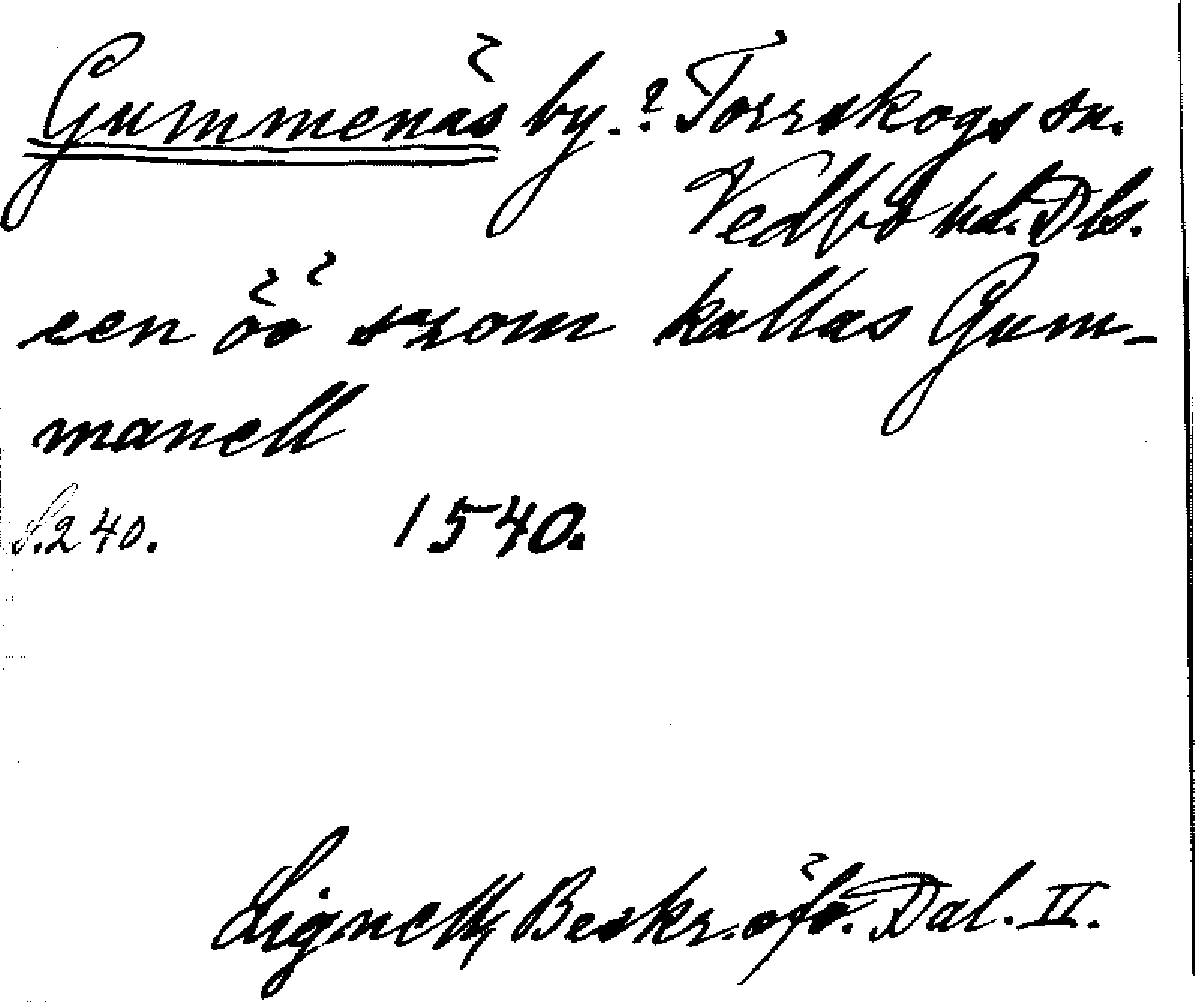 Gummenäs by.? Torrskogs sn.
Vedbo hd. Dls.
een öö som kallas Gum-
manell
S. 240. 1540.
Lignell, Beskr. öfv. Dal. II.